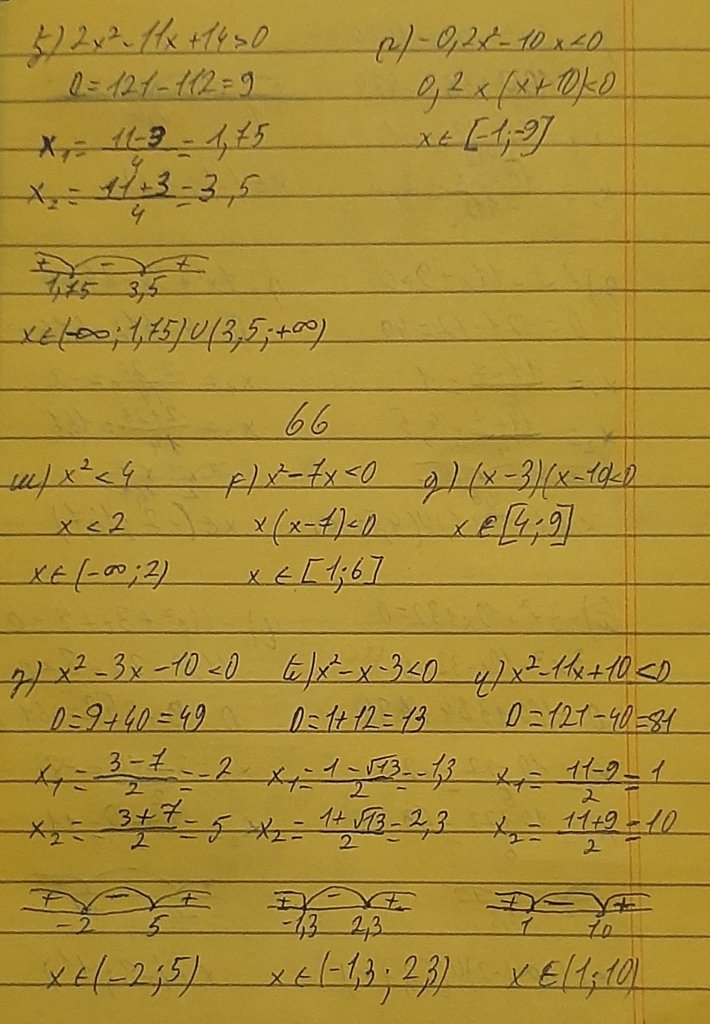 б) 2x² - 11x + 14 > 0
D = 121 - 112 = 9
x₁ = (11-3)/4 = 1,75
x₂ = (11+3)/4 = 3,5
+ - +
1,75 3,5
x ∈ (-∞; 1,75) ∪ (3,5; +∞)
г) -0,2x² - 10x < 0
0,2x(x+10) < 0
x ∈ [-1; -9]
66
ш) x² < 4
x < 2
x ∈ (-∞; 2)
г) x² - 7x < 0
x(x-7) < 0
x ∈ [1; 6]
g) (x-3)(x-10) < 0
x ∈ [4; 9]
з) x² - 3x - 10 < 0
D = 9 + 40 = 49
x₁ = (3-7)/2 = -2
x₂ = (3+7)/2 = 5
+ - +
-2 5
x ∈ (-2; 5)
ь) x² - x - 3 < 0
D = 1 + 12 = 13
x₁ = (1-√13)/2 = -1,3
x₂ = (1+√13)/2 = 2,3
+ - +
-1,3 2,3
x ∈ (-1,3; 2,3)
ч) x² - 11x + 10 < 0
D = 121 - 40 = 81
x₁ = (11-9)/2 = 1
x₂ = (11+9)/2 = 10
+ - +
1 10
x ∈ (1; 10)